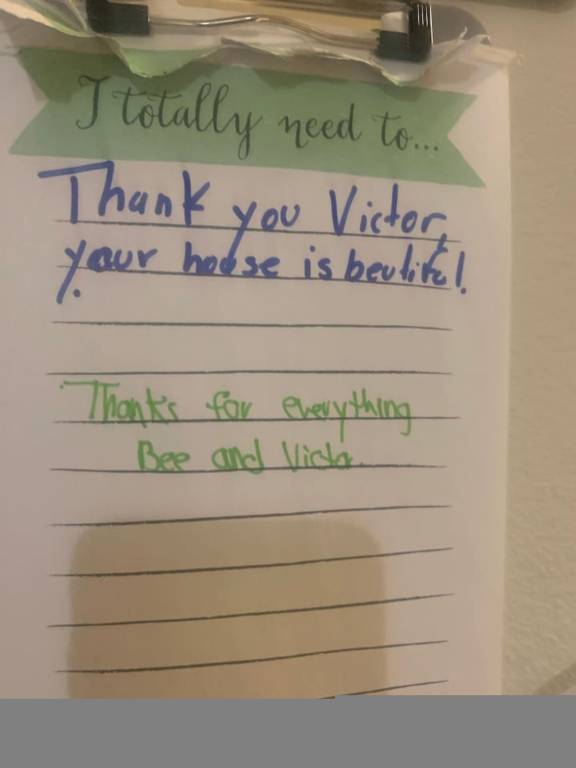 I totally need to...
Thank you Victor,
your house is beutiful!
Thanks for everything
Bee and Victor